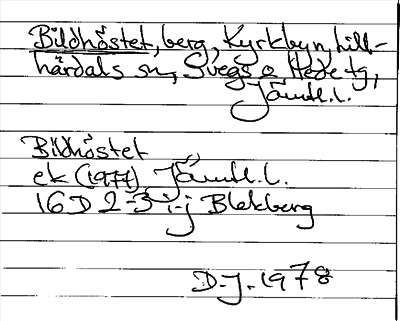 Bildhöstet, berg, Kyrkbyn, Lill-
härdals sn, Svegs o Hede tg,
Jämtl.l.
Bildhöstet
ek (1977) Jämtl.l.
16D 2-3 i-j Blekberg
D-J. 1978